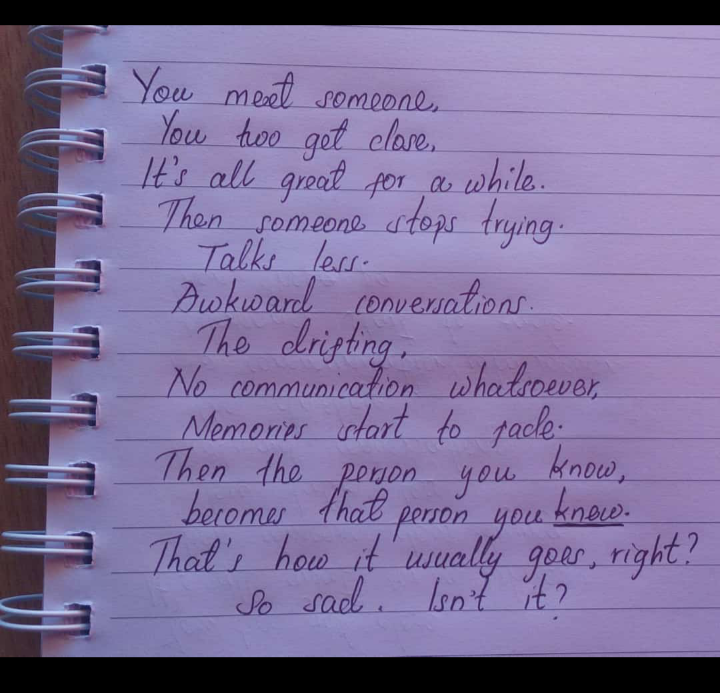 You meet someone,
You too get close,
It's all great for a while.
Then someone stops trying.
Talks less.
Awkward conversations.
The drifting,
No communication whatsoever,
Memories start to fade.
Then the person you know,
becomes that person you knew.
That's how it usually goes, right?
So sad. Isn't it?